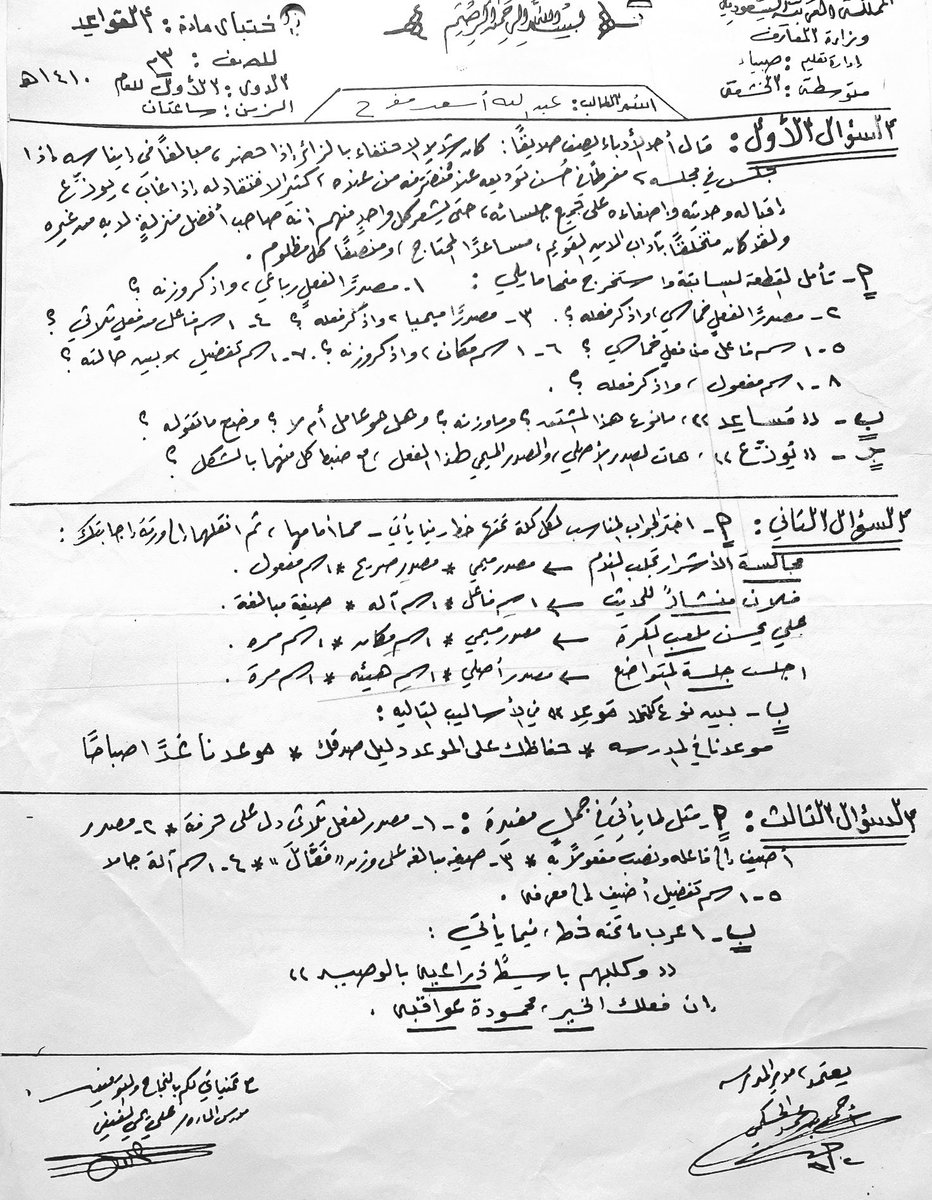 المملكة العربية السعودية
وزارة المعارف
إدارة تعليم : صبياء
متوسطة : الخشقة
بسم الله الرحمن الرحيم
اختبار مادة : القواعد
للصف : ٣م
الدور : الأول للعام ١٤١٠هـ
الزمن : ساعتان
اسم الطالب : عبدالله أسعد مفرح
السؤال الأول : قال أحد الأدباء يصف صديقًا : كان شديد الاحتفاء بالزائر إذا حضر ، مبالغًا في إيناسه إذا
جلس في مجلسه ، مفرطًا في حُسن توديعه عند مُنصَرَفه من عنده ، كثير الافتقاد له إذا غاب ، يوزّع
إقباله وحديثه وإصغاءه على جميع جلسائه ، حتى يشعر كل واحدٍ منهم أنه صاحب أفضل منزلةٍ لديه من غيره
ولقد كان متخلقًا بآداب الدين القويم ، مساعدًا المحتاج ، ومنصفًا كل مظلوم .
أ - تأمل القطعة السابقة واستخرج منها مايلي : ١- مصدرًا لفعل رباعي ، واذكر وزنه ؟
٢- مصدرًا لفعلٍ خماسي ، واذكر فعله ؟ . ٣- مصدرًا ميميا ، واذكر فعله ؟ ٤- اسم فاعل من فعل ثلاثي ؟
٥- اسم فاعل من فعلٍ خماسي ؟ ٦- اسم مكان ، واذكر وزنه ؟ ٧- اسم تفضيل ، وبين حالته ؟
٨- اسم مفعول ، واذكر فعله ؟ .
ب - (( مساعد )) ، مانوع هذا المشتق ؟ وما وزنه ؟ وهل هو عامل أم لا ؟ وضح ما تقوله ؟
ج - (( يوزّع )) ، هات المصدر الأصلي ، والمصدر الميمي لهذا الفعل ، مع ضبط كل منهما بالشكل ؟
السؤال الثاني : أ - اختر الجواب المناسب لكل كلمة تحتها خط فيما يأتي - مما أمامها ، ثم انقلهما إلى ورقة إجابتك :
مجالسة الأشرار تجلب الندم ← مصدر ميمي * مصدر صريح * اسم مفعول .
فلان منشادٌ للحديث ← اسم فاعل * اسم آله * صيغة مبالغة .
علي يحسن ملعب الكرة ← مصدر ميمي * اسم مكان * اسم مره .
اجلس جلسة المتواضع ← مصدر أصلي * اسم هيئه * اسم مرة .
ب - بين نوع كلمة موعد في الأساليب التاليه :
موعدنا في المدرسه * حفاظك على الموعد دليل صدقك * موعدنا غدًا صباحًا
السؤال الثالث : أ - مثل لما يأتي في جملٍ مفيدة : - ١- مصدر لفعل ثلاثي دل على حرفة * ٢- مصدر
أضيف إلى فاعله ونصب مفعولاً به * ٣- صيغه مبالغه على وزن (( فَعَّال )) * ٤- اسم آلة جامد
٥- اسم تفضيل أضيف إلى معرفه .
ب - اعرب ما تحته خط ، فيما يأتي :
(( وكلبهم باسطٌ ذراعيه بالوصيد ))
إن فعلك الخير ، محمودة عواقبه .
يعتمد ، مدير المدرسه
مع تمنياتي لكم بالنجاح والتوفيق
مدرس الماده / علي